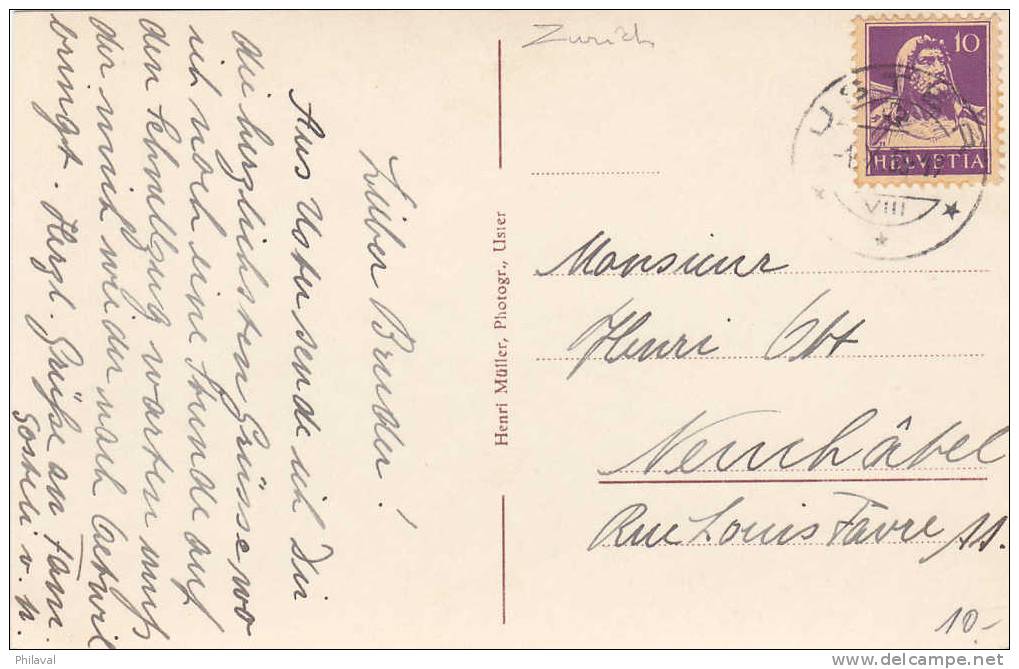 Lieber Bruder!
Aus Uster sende ich Dir
die herzlichsten Grüsse wo
ich noch eine Stunde auf
den Schnellzug warten muss
der mich wieder nach Oetwil
bringt. Herzl. Grüße an Fam.
Gosteli v. H.
Henri Müller, Photogr., Uster
Zurich
10
HELVETIA
USTER
VIII
Monsieur
Henri Ott
Neuchâtel
Rue Louis Favre 11.
10.-
Philaval
delcampe.net